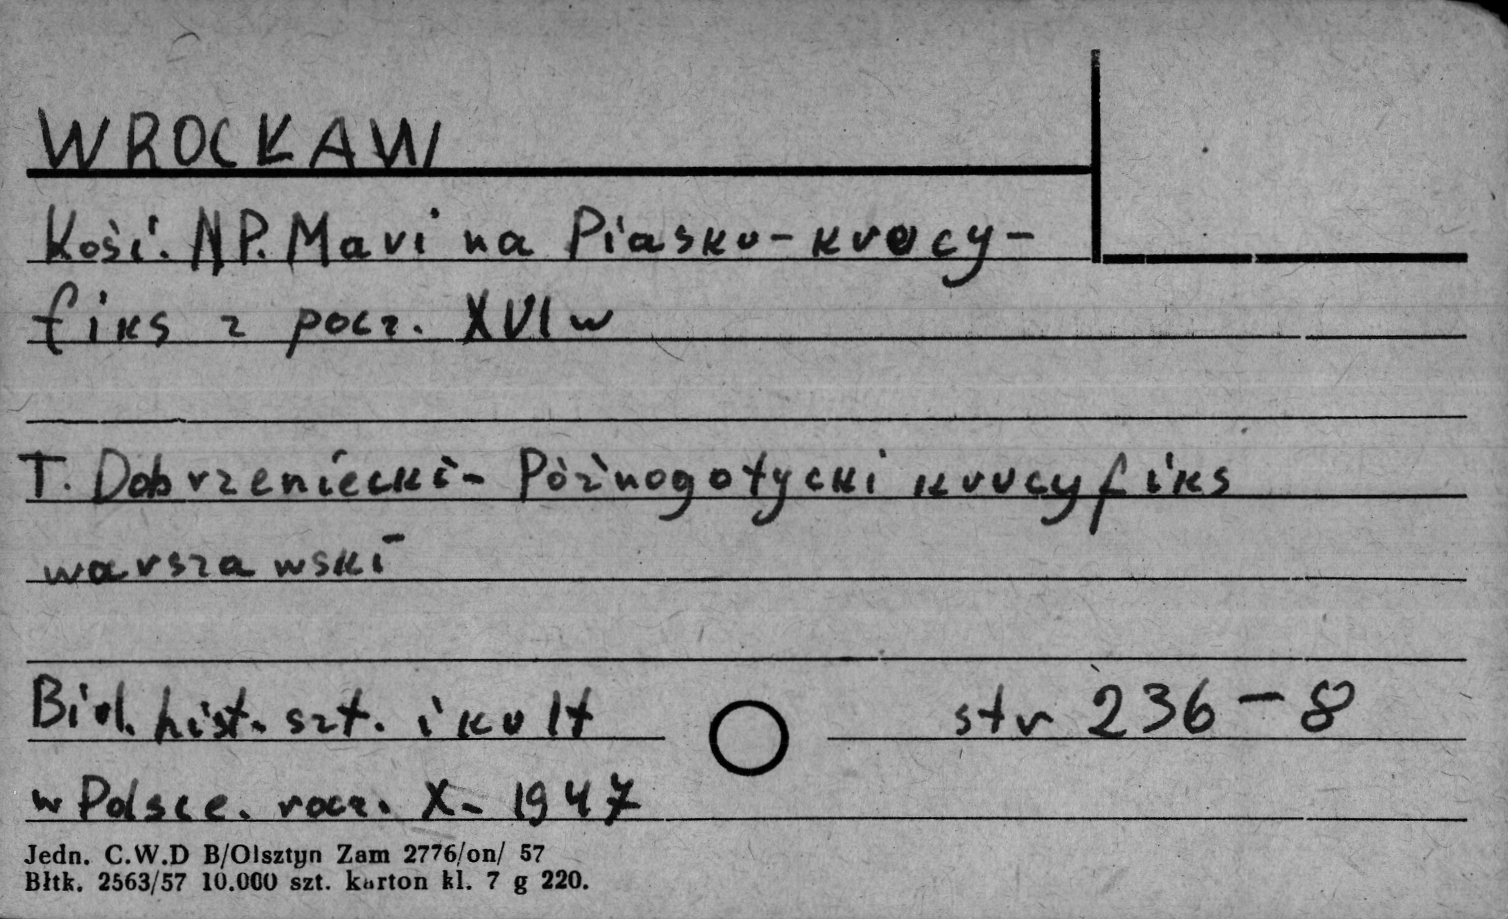 WROCŁAW
Kość. NP. Mari na Piasku - krucy-
fiks z pocz. XVI w
T. Dobrzeniecki - Późnogotycki krucyfiks
warszawski
Biul. hist. szt. i kult
str 236-8
w Polsce. rocz. X - 1947
Jedn. C.W.D B/Olsztyn Zam 2776/on/ 57
Błtk. 2563/57 10.000 szt. karton kl. 7 g 220.